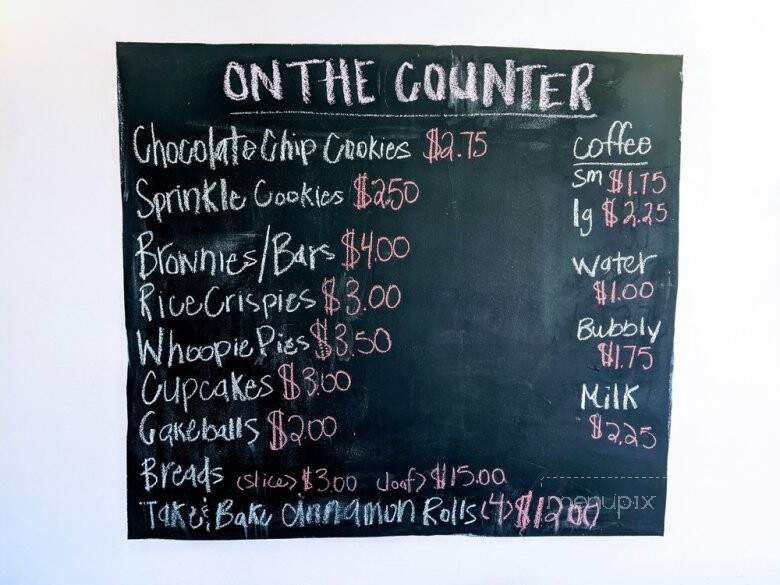 ON THE COUNTER
Chocolate Chip Cookies $2.75
Sprinkle Cookies $2.50
Brownies/Bars $4.00
Rice Crispies $3.00
Whoopie Pies $3.50
Cupcakes $3.00
Cakeballs $2.00
Breads (slice) $3.00 (loaf) $15.00
Take & Bake Cinnamon Rolls (4) $12.00
Coffee
sm $1.75
lg $2.25
Water
$1.00
Bubbly
$1.75
Milk
$2.25
menupix